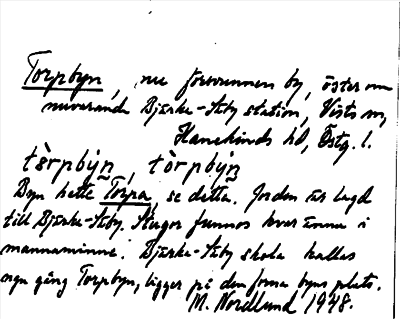 Torpbyn, nu försvunnen by, öster om
nuvarande Bjärka-Säby station, Vists sn,
Hanekinds hd, Östg. l.
tèrpbýn, tòrpbýn
Byn hette Torpa, se detta. Jorden är lagd
till Bjärka-Säby. Stugor funnos kvar ännu i
mannaminne. Bjärka-Säby skola kallas
ngn gång Torpbyn, ligger på den forna byns plats.
M. Nordlund 1948.